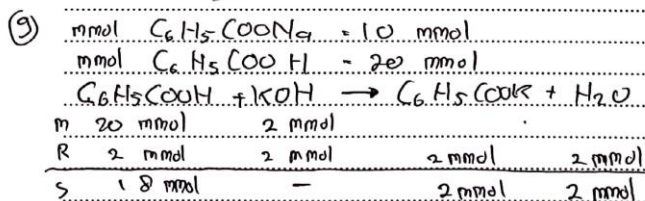 9 mmol C6H5COONa = 10 mmol
mmol C6H5COOH - 20 mmol
C6H5COOH + KOH → C6H5COOK + H2O
M 20 mmol 2 mmol
R 2 mmol 2 mmol 2 mmol 2 mmol
S 18 mmol - 2 mmol 2 mmol